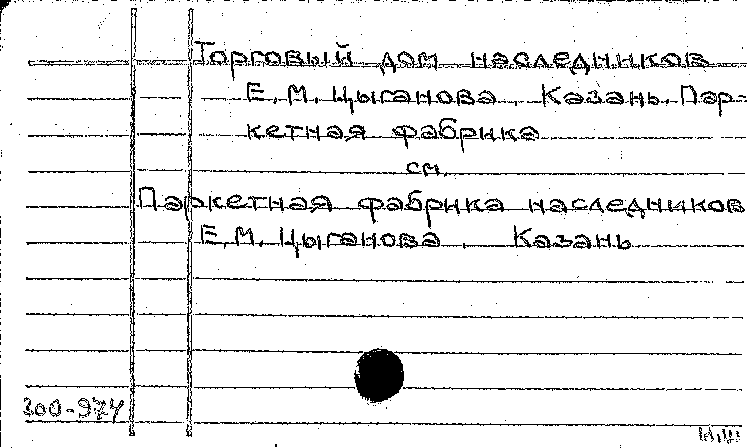 Торговый дом наследников
Е.М. Цыганова. Казань. Пар-
кетная фабрика
см.
Паркетная фабрика наследников
Е.М. Цыганова. Казань
300-974